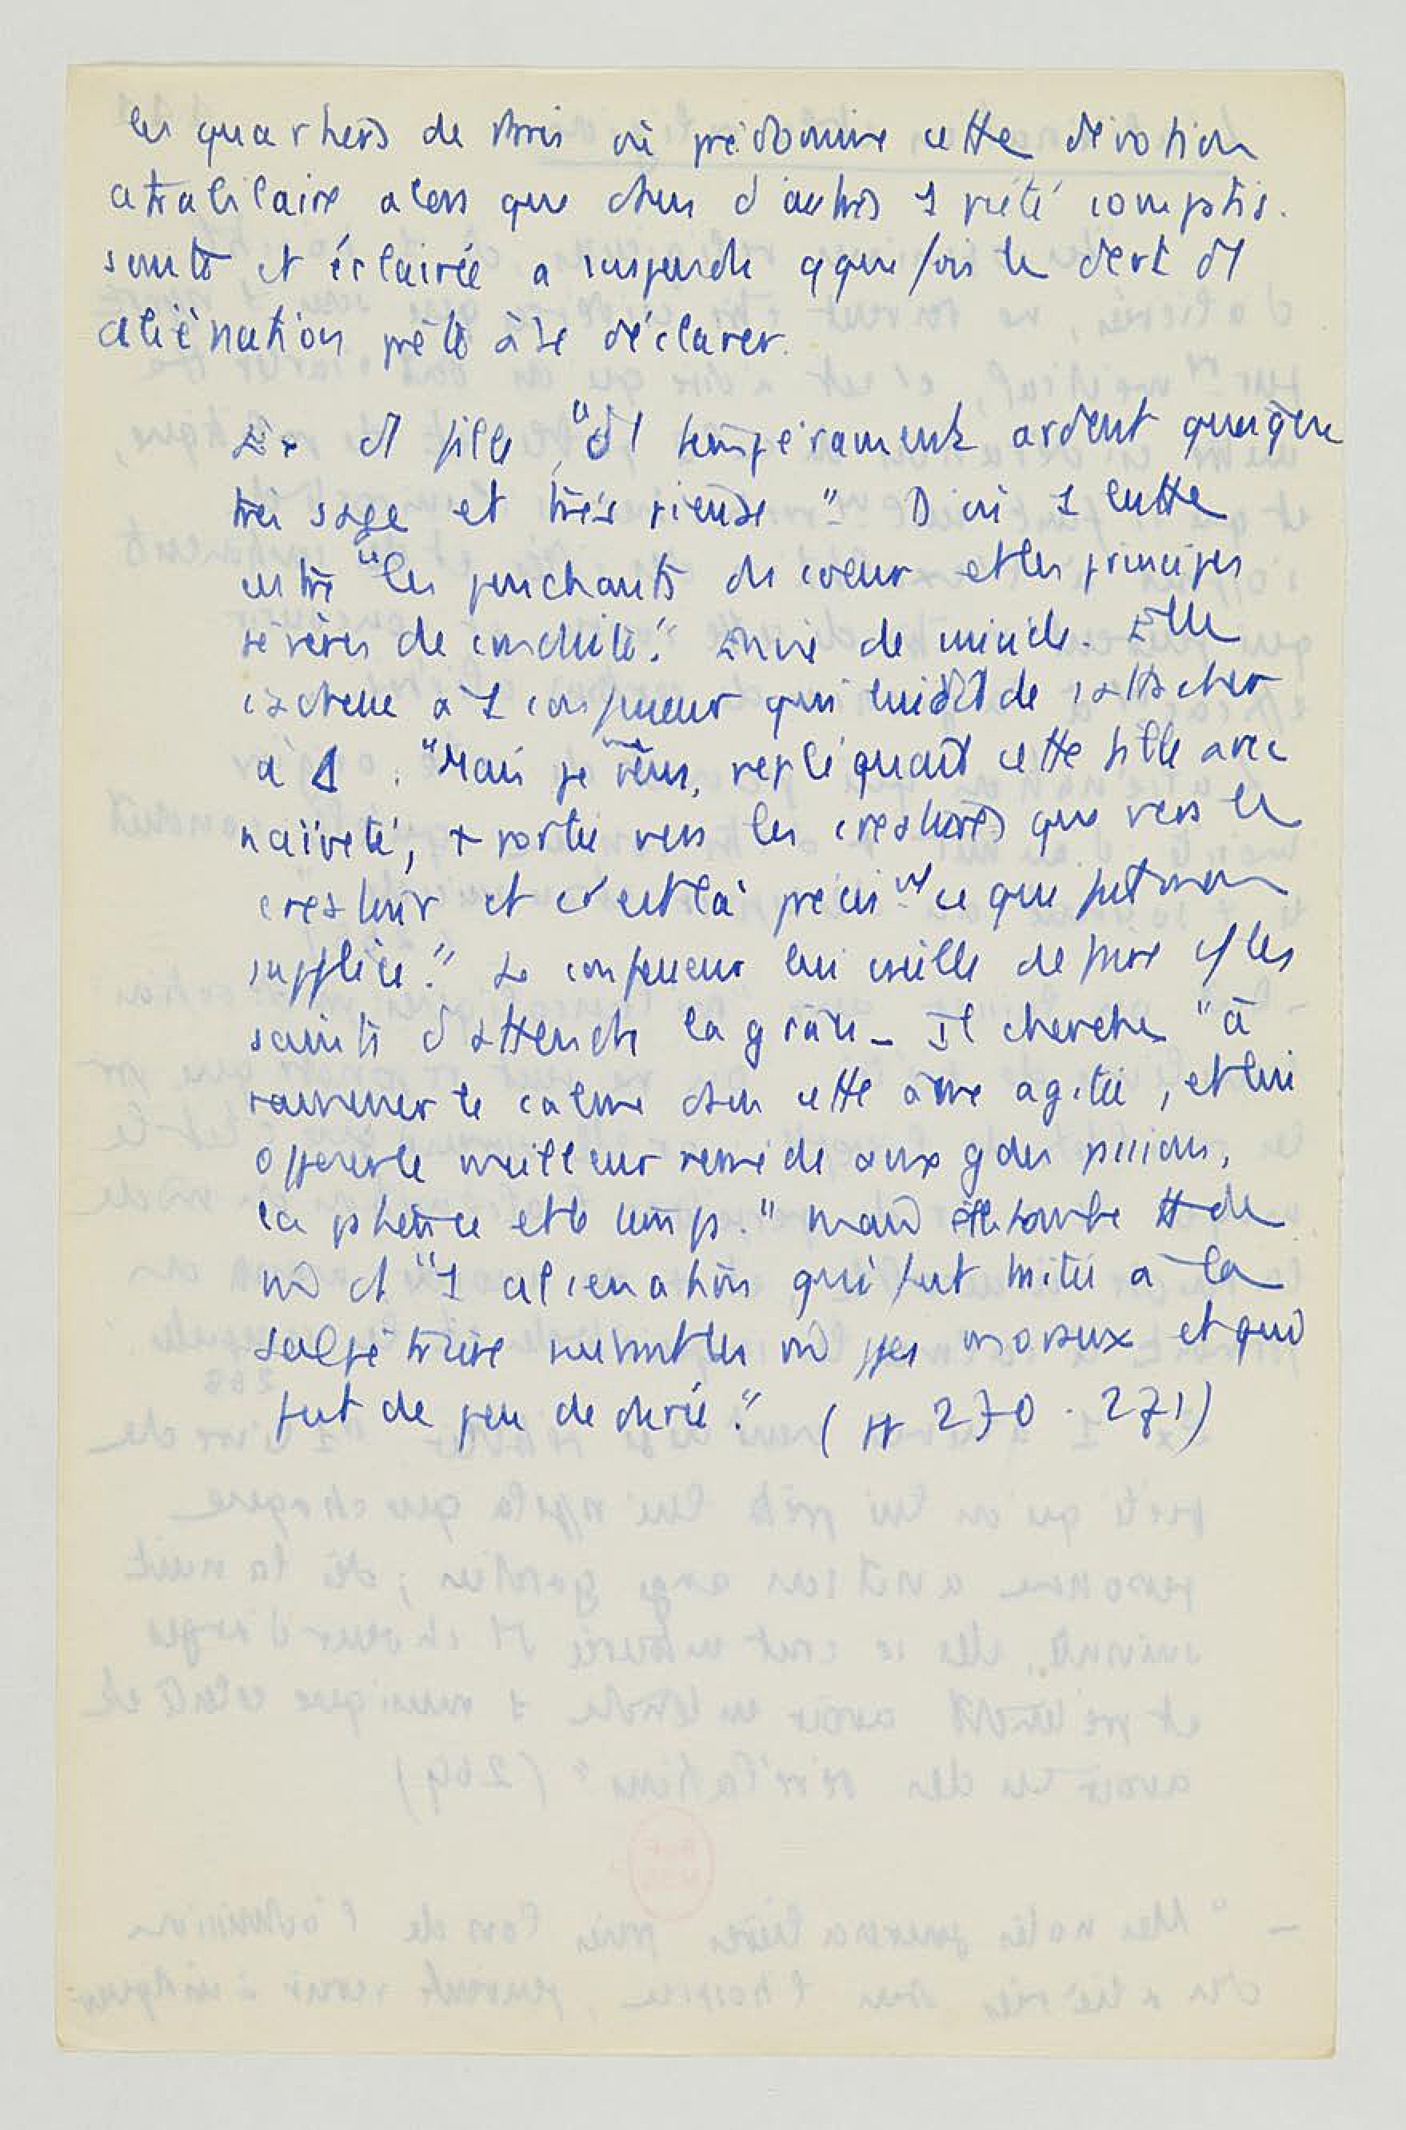 les quartiers de Paris où prédomine cette dévotion
atrabilaire alors que dans d'autres 1 piété compatis-
sante et éclairée a suspendu qquefois le dert d'1
aliénation prête à se déclarer.
Ex d'1 fille, "d'1 tempérament ardent quoique
très sage et très pieuse". D'où 1 lutte
entre "les penchants du coeur et les principes
sévères de conduite". Envie de suicide. Elle
s'adresse à 1 confesseur qui lui dit de s'attacher
à Δ. "Mais je me sens, répliquait cette fille avec
naïveté, + portée vers les créatures que vers le
créateur et c'est là précist ce qui fait mon
supplice". Le confesseur lui conseille de faire c/ les
saints d'attendre la grâce _ Il cherche "à
ramener le calme dans cette âme agitée, et lui
opposer le meilleur remède aux gdes passions,
la patience et le temps." mais elle tombe
ds d' "1 aliénation qui fut traitée à la
Salpêtrière suivant les ppes moraux et qui
fut de peu de durée". (pp 270-271)